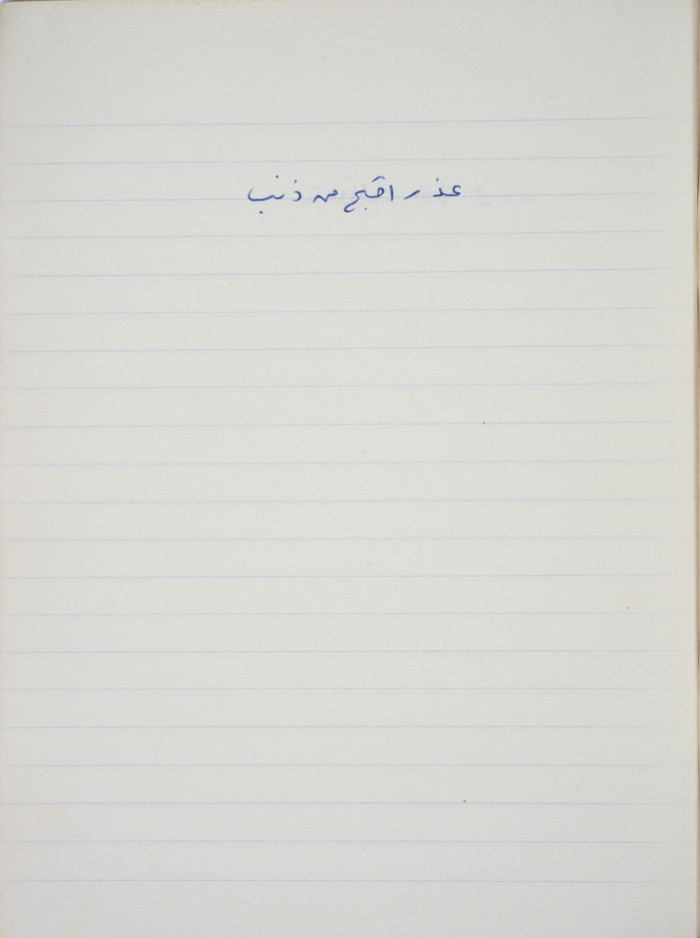 عذر اقبح من ذنب